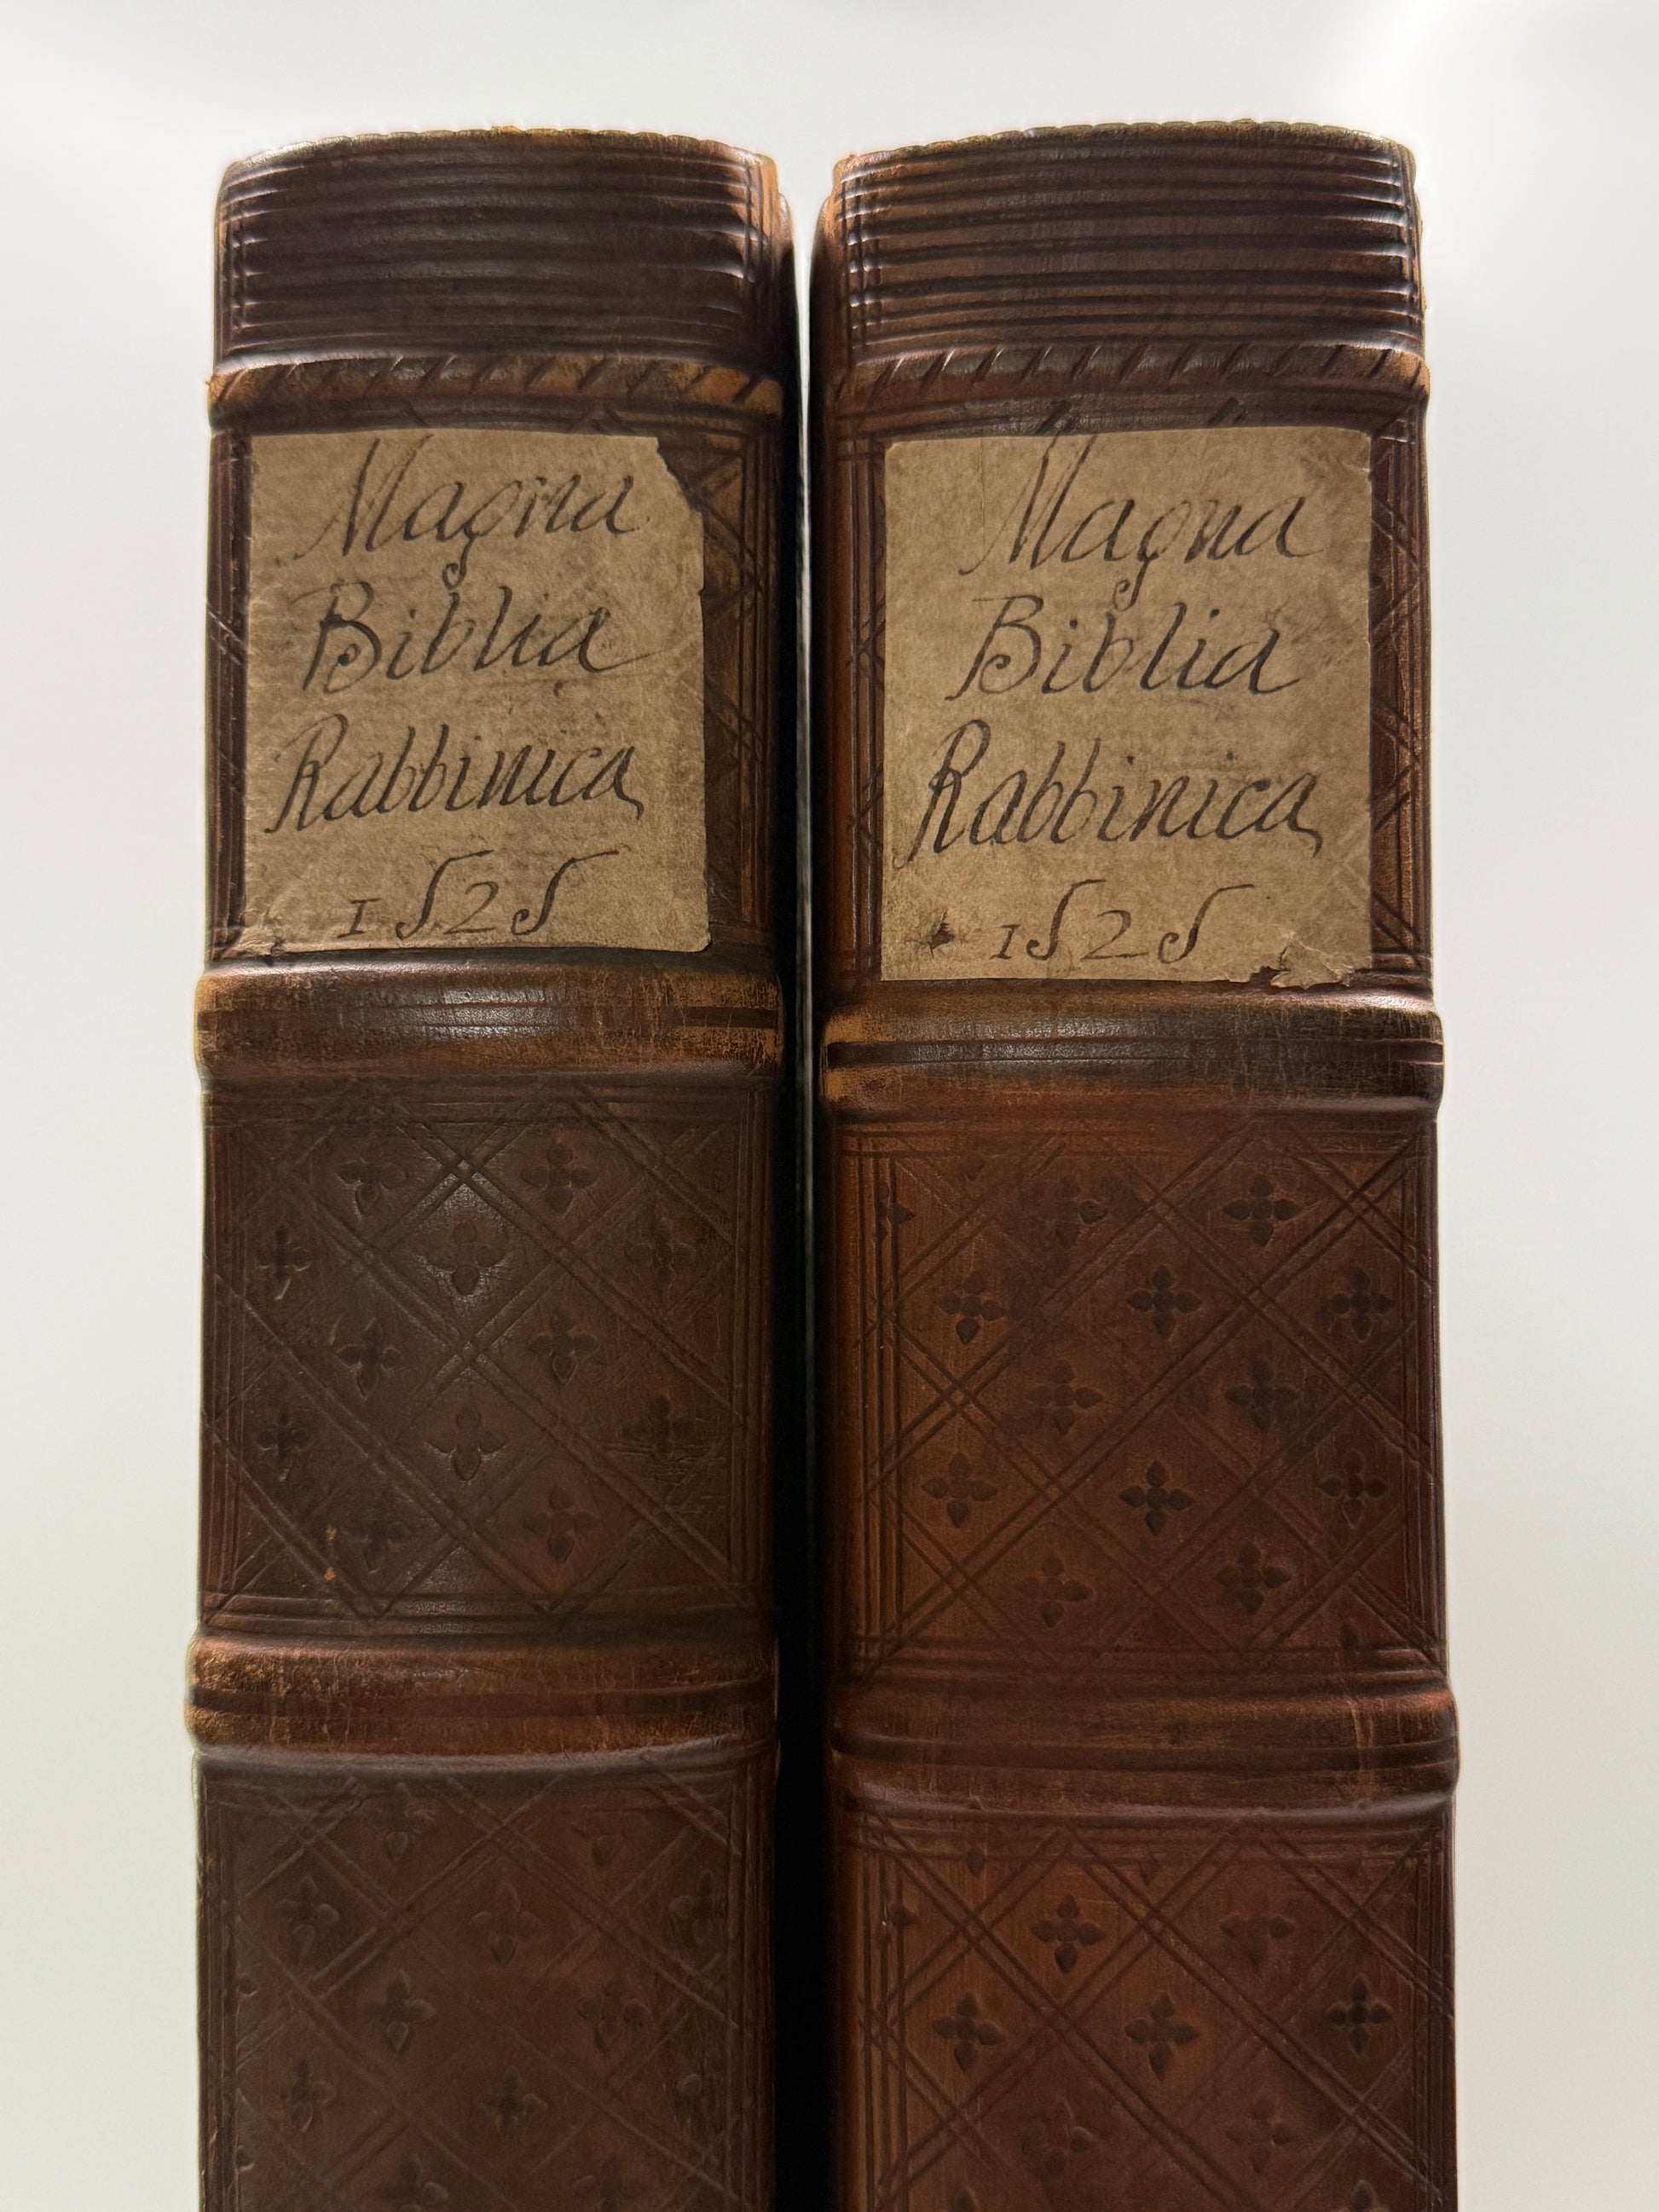 Magna
Biblia
Rabbinica
1525
Magna
Biblia
Rabbinica
1525